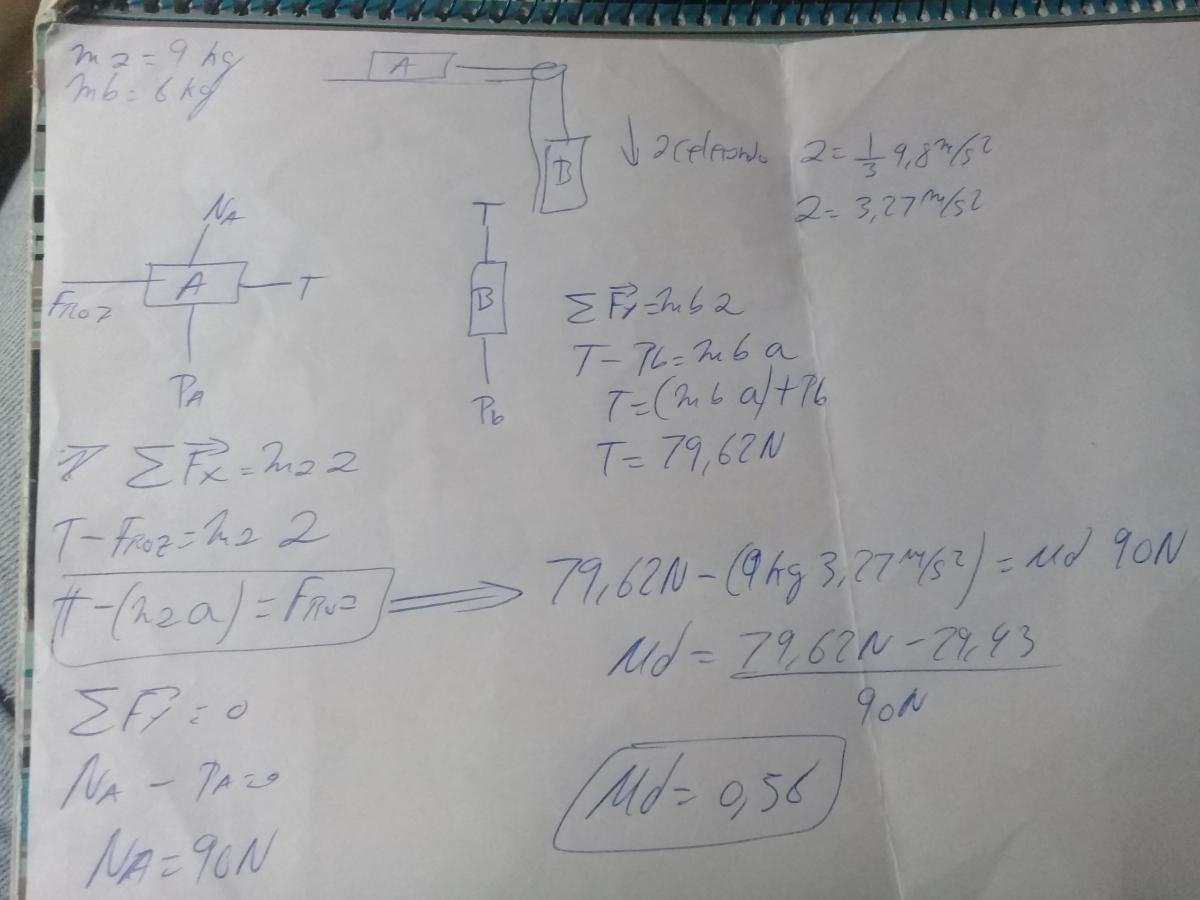 ma = 9 kg
mb = 6 kg
A
B
↓ acelerando
a = 1/3 9,8 m/s²
a = 3,27 m/s²
NA
FROZ
A
T
PA
T
B
Pb
ΣFy = mb a
T - Pb = mb a
T = (mb a) + Pb
T = 79,62N
ΣFx = ma a
T - FROZ = ma a
T - (ma a) = FROZ
79,62N - (9kg 3,27 m/s²) = Md 90N
Md = 79,62N - 29,43
90N
Md = 0,56
ΣFy = 0
NA - PA = 0
NA = 90N